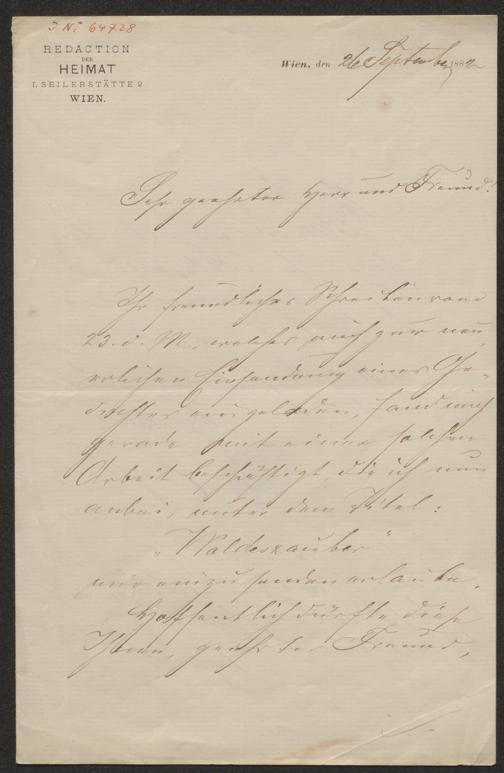 J. N. 64728
REDACTION
DER
HEIMAT
I. SEILERSTÄTTE 2
WIEN.
Wien, den 26 September 1882
Sehr geehrter Herr und Freund!
Ihr freundliches Schreiben vom
23. d. M., welches mich zur neu-
erlichen Einsendung eines Ge-
dichtes eingeladen, fand mich
gerade mit einer solchen
Arbeit beschäftigt, die ich nun
anbei, unter dem Titel:
„Waldeszauber"
mir einzusenden erlaube.
Hoffentlich dürfte diese
Ihnen, geehrter Freund,